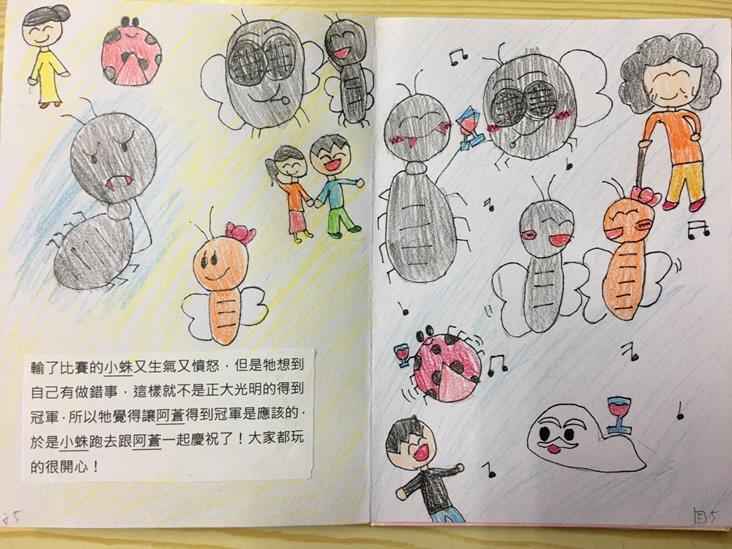 輸了比賽的小蛛又生氣又憤怒，但是牠想到
自己有做錯事，這樣就不是正大光明的得到
冠軍，所以牠覺得讓阿蒼得到冠軍是應該的，
於是小蛛跑去跟阿蒼一起慶祝了！大家都玩
的很開心！
文5
圖5